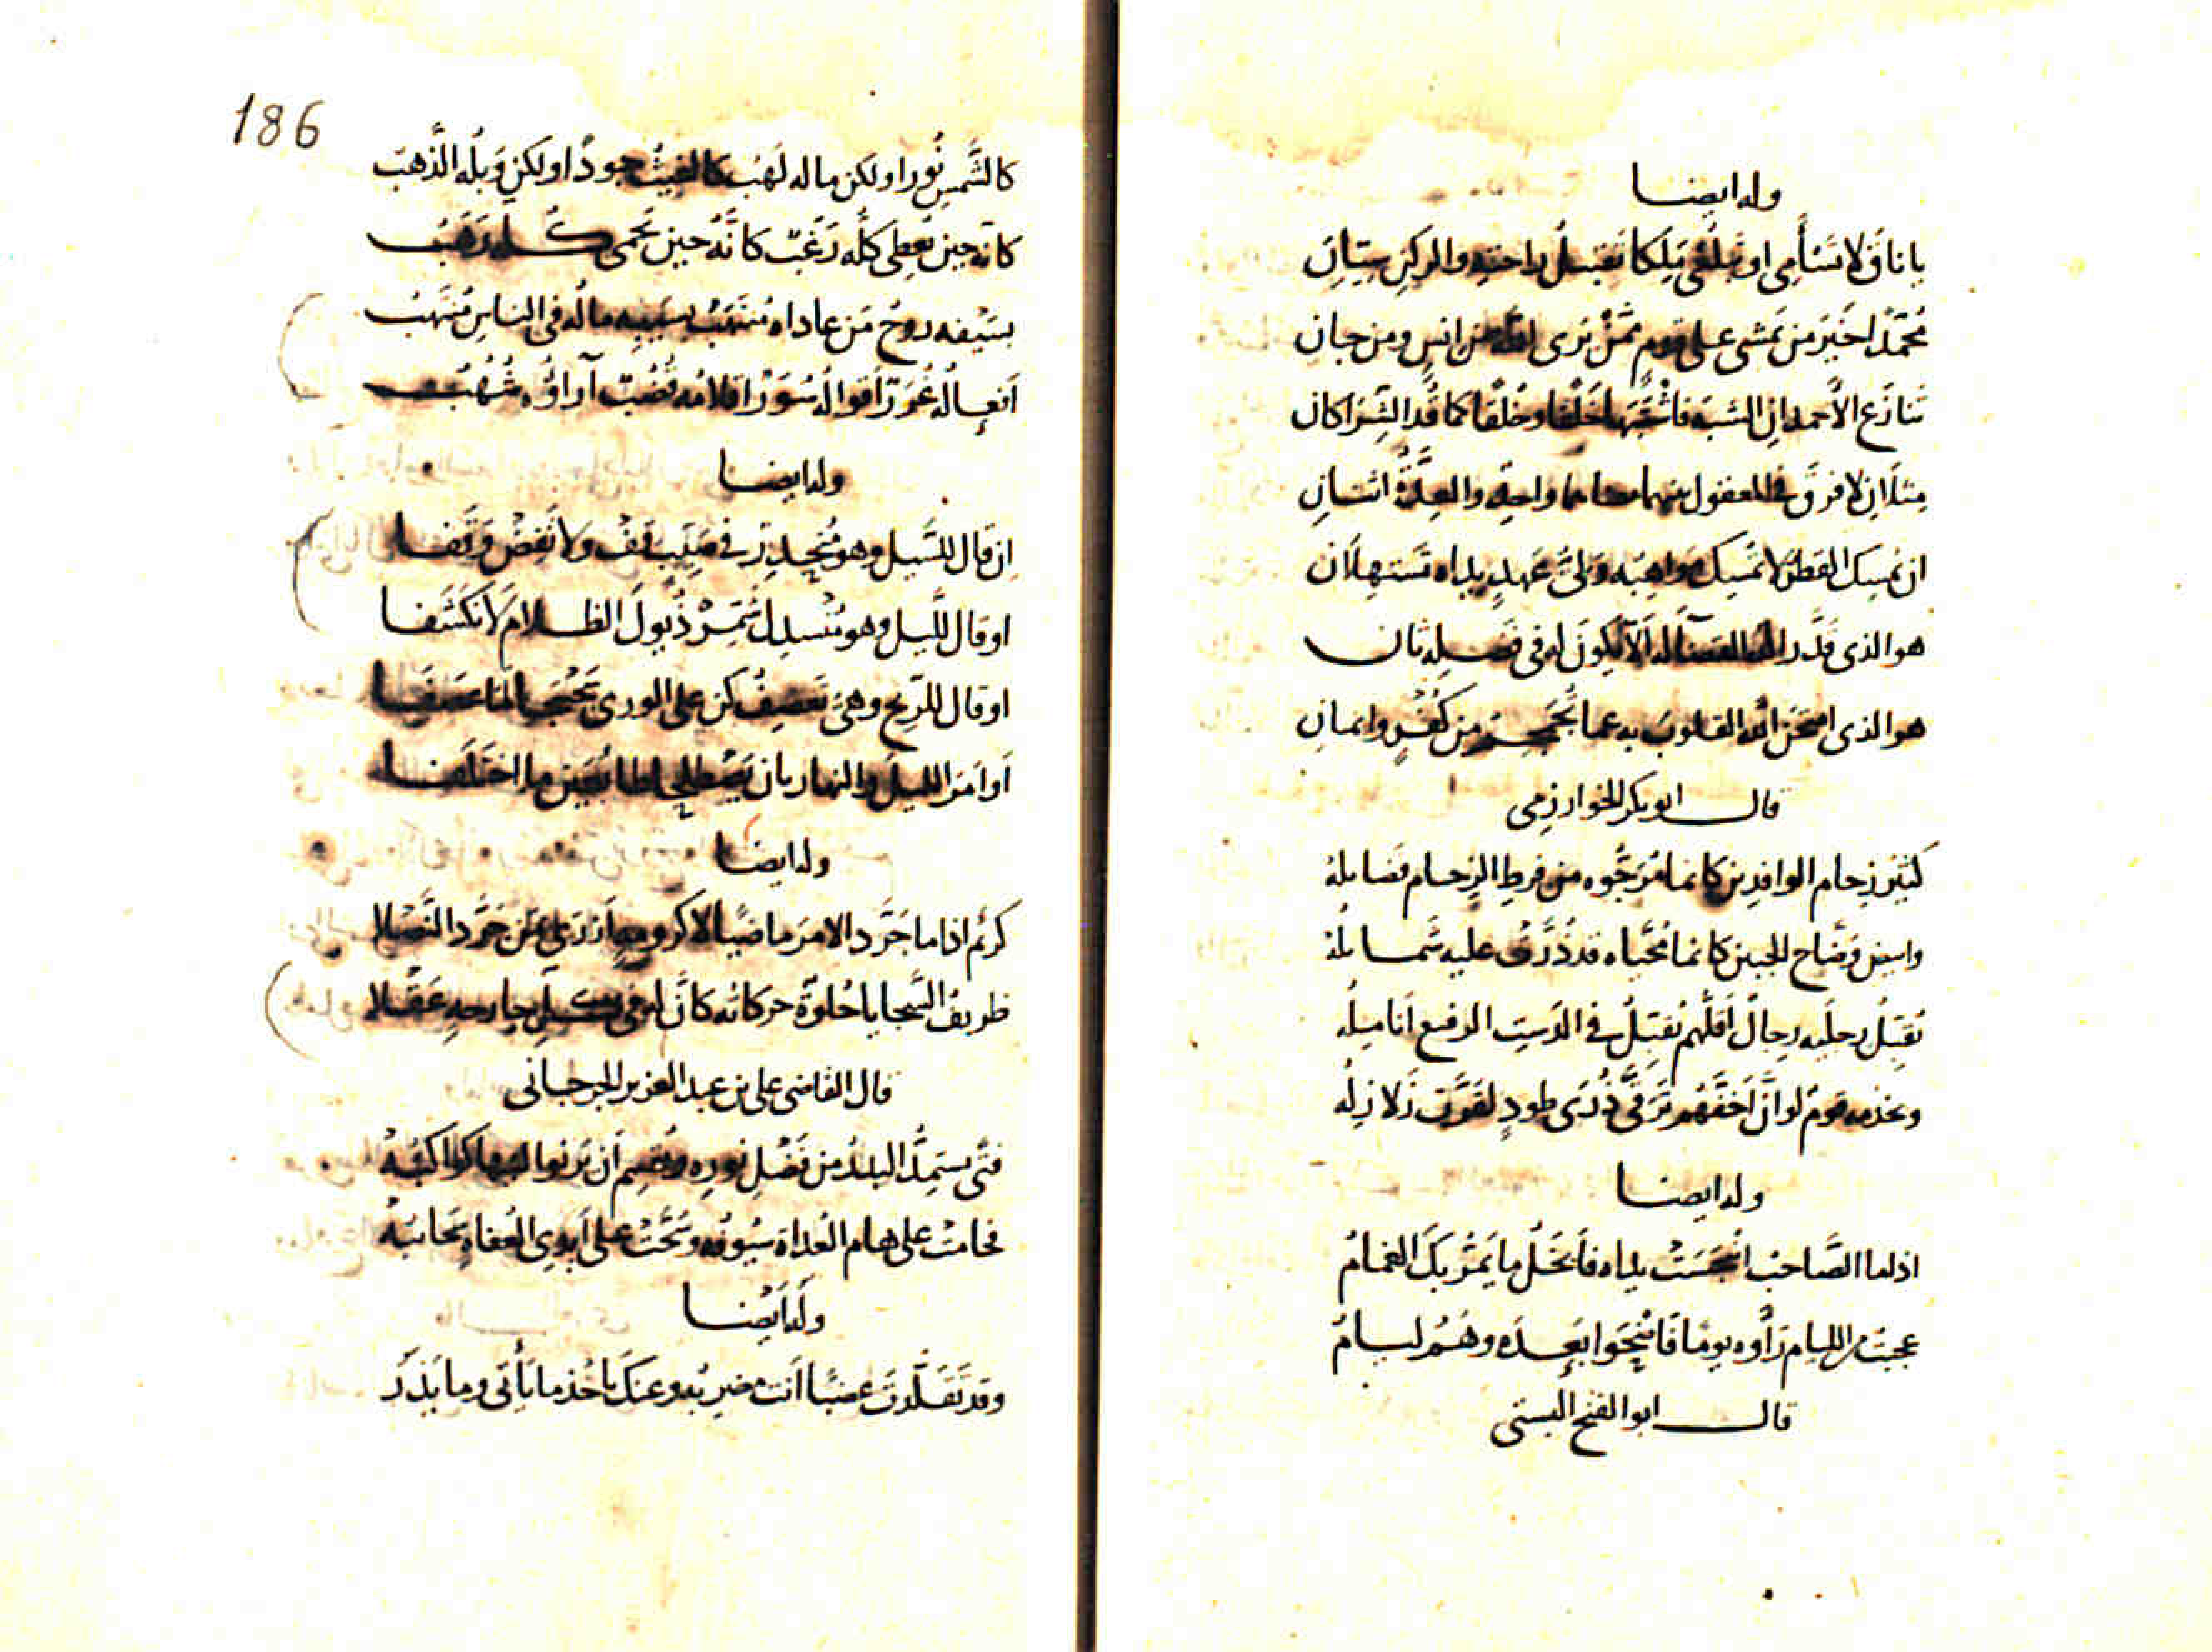 وله ايضا
يا ناق لا تسأمى او تبلغى ملكا تقبيل راحته والركن سيان
محمد اخير من يمشى على قدم ممن برى الله من انس ومن جان
تنازع الاحمدان الشبه فاشتبها خلقا وخلقا كما قد الشراكان
مثلان لا فرق فى المعقول بينهما معناهما واحد والعدة اثنان
ان يمسك القطر لا تمسك مواهبه ولى عهد يداه تستهلان
هو الذى قدر الله القضاء له ألا يكون له فى فضله ثان
هو الذى امتحن الله القلوب به عما تجمجم من كفر وايمان
قال ابو بكر الخوارزمى
كثير زحام الوافدين كانما مرجوه من فرط الزحام فضائله
وابيض وضاح الجبين كانما محياه قد درت عليه شمائله
تقبل رجليه رجال أقلهم تقبل فى الدست الرفيع أنامله
ويخدمه قوم لو ان أخفهم ترقى ذرى طود لقوت زلازله
وله ايضا
اذا ما الصاحب انبجست يداه فأبخل ما يمر بك الغمام
عجبت من الليام رأوه يوما فانتحوا بعده وهم ليام
قال ابو الفتح البستى
186
كالشمس نورا ولكن ماله لهب كالغيث جودا ولكن وبله الذهب
كانه حين يعطى كله رغب كانه حين يحمى كله رهب
بسيفه روح من عاداه منتهب بسيبه ماله فى الناس منتهب
أفعاله غرر أقواله سور أقلامه قضب آراؤه شهب
وله ايضا
ان قال للسيل وهو منحدر فى صبب قف ولا تفض وقفا
او قال لليل وهو منسدل شمر ذيول الظلام لانكشفا
او قال للريح وهى تعصف كن على الورى سجسجا لما عصفا
أو أمر الليل والنهار بان يصطلحا طائعين ما اختلفا
وله ايضا
كريم اذا ما جرد الامر ماضيا لاكرومة أزرى بمن جرد النصلا
ظريف السجايا حلوة حركاته كان له فى كل جارحة عقلا
قال القاضى على بن عبد العزيز الجرجانى
فتى يستمد البدر من فضل نوره ويقسم ان ترنوا اليها كواكبه
فحامت على هام العداة سيوفه وسحت على أيدى العفاة سحائبه
وله أيضا
وقد تقلدت عضبا أنت مضربه وعنك يأخذ ما يأتى وما يذر